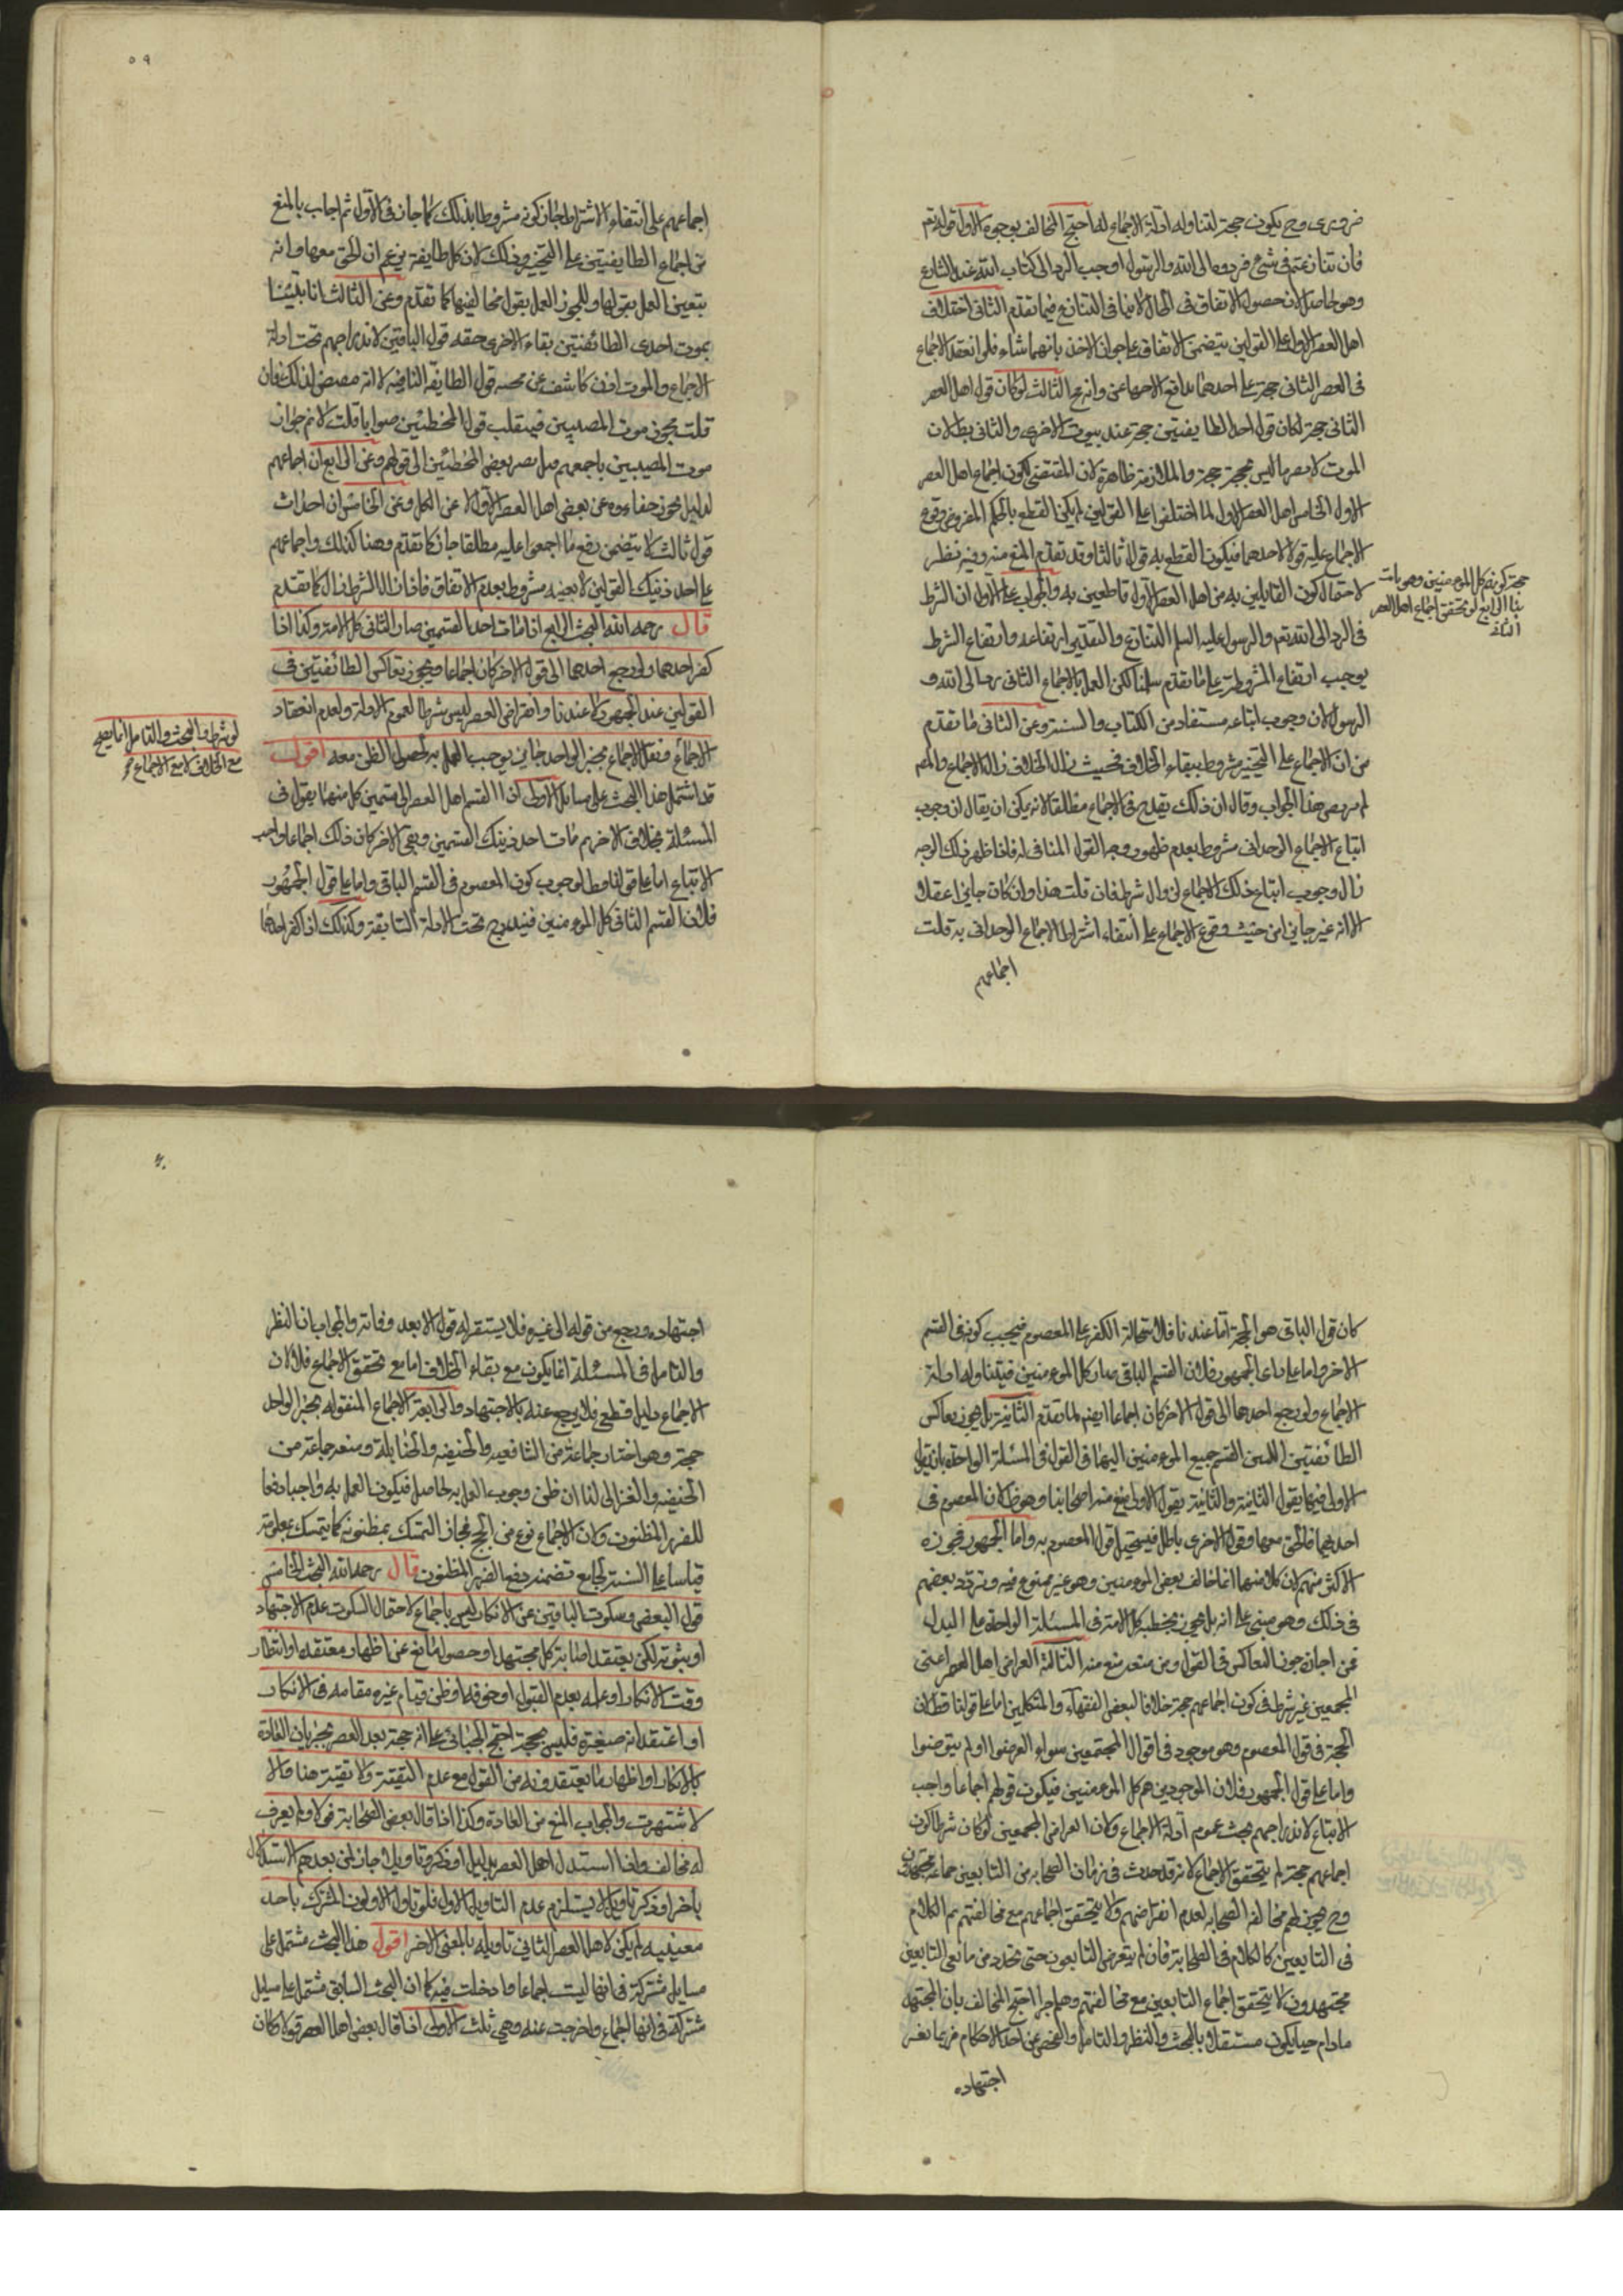 ضروری وح یکون حجة لتناول ادلة الاجماع له احتج المخالف بوجوه الاول قوله تعم
فان تنازعتم فی شیء فردوه الی الله والرسول اوجب الرد الی کتاب الله عند التنازع
وهو حاصل لان حصول الاتفاق فی الحال لا ینافی التنازع فیما تقدم الثانی اختلاف
اهل العصر الاول علی القولین یتضمن الاتفاق علی جواز الاخذ بایهما شاء فلو انعقد الاجماع
فی العصر الثانی حجة علی احدهما تدافع الاجماعان وانه مح الثالث لو کان قول اهل العصر
الثانی حجة لکان قول احد الطایفتین حجة عند موت الاخری والثانی بط لان
الموت لا یصیر ما لیس بحجة حجة والملازمة ظاهرة لان المقتضی لکون اجماع اهل العصر
الاول الخامس اهل العصر الاول لما اختلفوا علی القولین لم یکن القطع بالحکم المفروض وقوع
الاجماع علیه قولا لاحدهما فیکون القطع به قولا ثالثا وقد تقدم المنع منه وفیه نظر
لاحتمال کون القایلین به من اهل العصر الاول قاطعین به والجواب عن الاول ان الشرط
فی الرد الی الله تعم والرسول علیه السلم التنازع والتقدیر ارتفاعه وارتفاع الشرط
یوجب ارتفاع المشروط علی ما تقدم سلمنا لکن العمل بالاجماع الثانی رد الی الله و
الرسول لان وجوب اتباعه مستفاد من الکتاب والسنة وعن الثانی ما تقدم
من ان الاجماع علی التخییر مشروط ببقاء الخلاف فحیث زال الخلاف زال الاجماع والمصم
لم یرتض هذا الجواب وقال ان ذلک یقدح فی الاجماع مطلقا لانه یمکن ان یقال ان وجوب
اتباع الاجماع الوحدانی مشروط بعدم ظهور وجه القول المنافی له فاذا ظهر ذلک الوجه
زال وجوب اتباع ذلک الاجماع لزوال شرطه فان قلت هذا وان کان جایزا عقلا
الا انه غیر جایز من حیث وقوع الاجماع علی انتفاء اشتراط الاجماع الوحدانی به قلت
اجماعهم
حجة کونه کل المومنین وهو بات
هنا الرابع لو تحقق اجماع اهل العصر
الثانی
٥٩
اجماعهم علی انتفاء الاشتراط جاز کونه مشروطا بذلک کما جاز فی الاول ثم اجاب بالمنع
من اجماع الطایفتین علی التخییر وذلک لان کل طایفة تزعم ان الحق معها وانه
یتعین العمل بقولها ولا یجوز العمل بقول مخالفیها کما تقدم وعن الثالث انا تبینا
بموت احدی الطائفتین بقاء الاخری حقیة قول الباقین لاندراجهم تحت ادلة
الاجماع والموت اذن کاشف عن حجیة قول الطایفة الباقیه لا انه مقتض لذلک فان
قلت یجوز موت المصیبین فینقلب قول المخطئین صوابا قلت لا نم جواز
موت المصیبین باجمعهم بل یصیر بعض المخطئین الی قولهم وعن الرابع ان اجماعهم
لدلیل یجوز خفاءوه عن بعض اهل العصر الاول لا عن الکل وعن الخامس ان احداث
قول ثالث لا یتضمن رفع ما اجمعوا علیه مطلقا جایز کما تقدم وهنا کذلک واجماعهم
علی احد ذینک القولین لا بعینه مشروط بعدم الاتفاق فاذا زال الشرط زال کما تقدم
قال رحمه الله البحث الرابع اذا مات احد القسمین صار الثانی کل الامة وکذا اذا
کفر احدهما ولو رجع احدهما الی قول الاخر کان اجماعا ویجوز تعاکس الطائفتین فی
القولین عند الجمهور لا عندنا وانقراض العصر لیس شرطا لعموم الادلة ولعدم انعقاد
الاجماع ونقل الاجماع بخبر الواحد جایز یوجب العمل به لحصول الظن معه اقول
قد اشتمل هذا البحث علی مسایل الاولی اذا انقسم اهل العصر الی قسمین کل منهما یقول فی
المسئلة بخلاف الاخر ثم مات احد ذینک القسمین وبقی الاخر کان ذلک اجماعا واجب
الاتباع اما علی قولنا فظ لوجوب کون المعصوم فی القسم الباقی واما علی قول الجمهور
فلان القسم الثانی کل المومنین فیندرج تحت الادلة السابقة وکذلک اذا کفر احدهما
لو شرط والبحث والتامل انما یصح
مع الخلاف لا مع الاجماع مح
کان قول الباقی هو الحجة اما عندنا فلاستحالة الکفر علی المعصوم فیجب کونه فی القسم
الاخر واما علی رای الجمهور فلان القسم الباقی صار کل المومنین فیتناوله ادلة
الاجماع ولو رجع احدهما الی قول الاخر کان اجماعا ایضم لما تقدم الثانیة هل یجوز تعاکس
الطائفتین اللتین انقسم جمیع المومنین الیهما فی القول فی المسئلة الواحدة بان تقول
الاولی فیها بقول الثانیة والثانیة بقول الاولی منع منه اصحابنا وهو ظ لان المعصوم فی
احدیهما فالحق معها وقول الاخری باطل فیستحیل قول المعصوم به واما الجمهور فجوزه
الاکثر منهم لان کلا منهما انما خالف بعض المومنین وهو غیر ممنوع فیه وتردد بعضهم
فی ذلک وهو مبنی علی انه هل یجوز تخطیة کل الامة فی المسئلة الواحدة علی البدل
فمن اجاز جوز التعاکس فی القول ومن منعه منع منه الثالثة انقراض اهل العصر اعنی
المجمعین غیر شرط فی کون اجماعهم حجة خلافا لبعض الفقهاء والمتکلمین اما علی قولنا فظ لان
الحجة فی قول المعصوم وهو موجود فی اقوال المجتمعین سواء انقرضوا او لم ینقرضوا
واما علی قول الجمهور فلان الموجودین هم کل المومنین فیکون قولهم اجماعا واجب
الاتباع لاندراجهم تحت عموم ادلة الاجماع ولان انقراض المجمعین لو کان شرطا لکون
اجماعهم حجة لم یتحقق الاجماع لانه قد حدث فی زمان الصحابه من التابعین جماعة مجتهدون
وح یجوز لهم مخالفة الصحابه لعدم انقراضهم ولا یتحقق اجماعهم مع مخالفتهم ثم الکلام
فی التابعین کالکلام فی الصحابة فان لم ینقرض التابعون حتی تجدد من تابعی التابعین
مجتهدون لا یتحقق اجماع التابعین مع مخالفتهم وهلم جرا احتج المخالف بان المجتهد
مادام حیا یکون مشتغلا بالبحث والنظر والتامل والفحص عن اخذ الاحکام فربما تغیر
اجتهاده
٦٠
اجتهاده ورجع من قوله الی غیره فلا یستقر له قول الا بعد وفاته والجواب ان النظر
والتامل فی المسئلة انما یکون مع بقاء الخلاف اما مع تحقق الاجماع فلا لان
الاجماع دلیل قطعی فلا یرجع عنه بالاجتهاد والرابعة الاجماع المنقول بخبر الواحد
حجة وهو اختیار جماعة من الشافعیه والحنیفه والحنابلة ومنعه جماعة من
الحنیفه والغزالی لنا ان ظن وجوب العمل به حاصل فیکون العمل به واجبا دفعا
للضرر المظنون ولان الاجماع نوع من الحجج فجاز التمسک بمظنونه کما یتمسک بمعلومه
قیاسا علی السنة لجامع تضمنه دفع الضرر المظنون قال رحمه الله البحث الخامس
قول البعض وسکوت الباقین عن الانکار لیس باجماع لاحتمال السکوت عدم الاجتهاد
او ثبوته لکن یعتقد اصابة کل مجتهد او حصول مانع عن اظهار معتقده او انتظار
وقت الانکار او علمه بعدم القبول او خوفه او ظن قیام غیره مقامه فی الانکار
او اعتقد انه صغیرة فلیس بحجة احتج الجبائی علی انه حجة بعد العصر بجریان العادة
بالانکار او اظهار ما یعتقدونه من القول مع عدم التقیة ولا تقیة هنا والا
لاشتهرت والجواب المنع من العادة وکذا اذا قال بعض الصحابة قولا ولم یعرف
له مخالف واذا استدل اهل العصر بدلیل او ذکروا تاویلا جاز لمن بعدهم الاستدلال
باخر او ذکر تاویل لا یستلزم عدم التاویل الاول فلو تاول الاولون المشترک باحد
معنییه لم یکن لاهل العصر الثانی تاویله بالمعنی الاخر اقول هذا البحث مشتمل علی
مسایل مشترکة فی انها لیست اجماعا وادخلت فیه کما ان البحث السابق مشتمل علی مسایل
مشترکة فی انها اجماع واخرجت عنه وهی ثلث الاولی اذا قال بعض اهل العصر قولا وکان